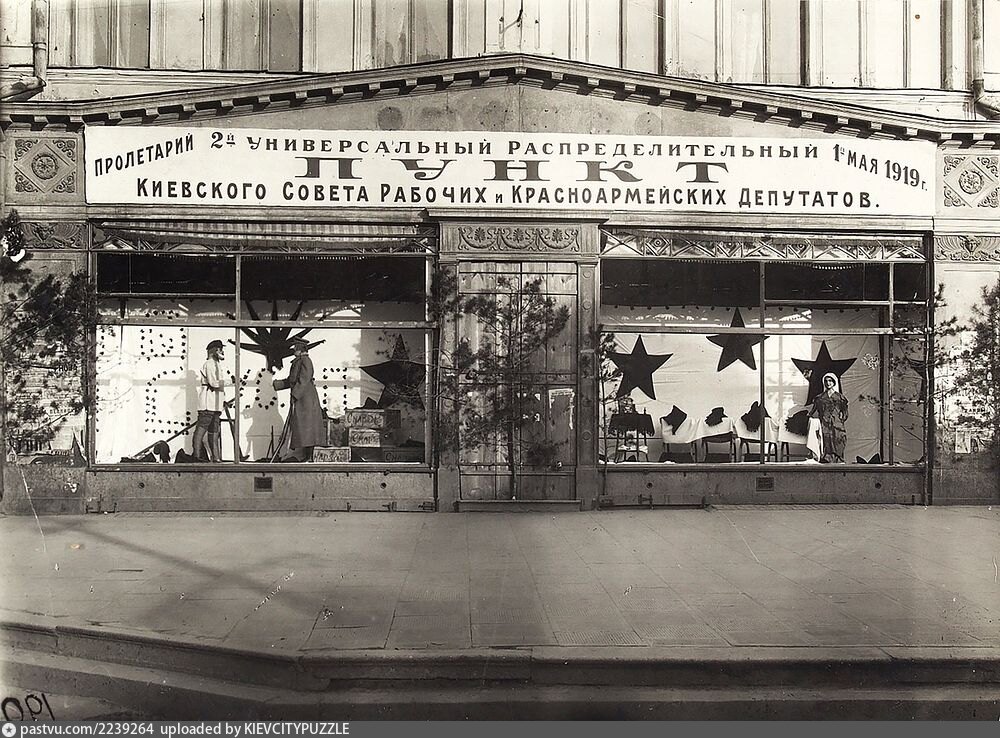 ПРОЛЕТАРИЙ 2й УНИВЕРСАЛЬНЫЙ РАСПРЕДЕЛИТЕЛЬНЫЙ 1го МАЯ 1919 г.
ПУНКТ
КИЕВСКОГО СОВЕТА РАБОЧИХ и КРАСНОАРМЕЙСКИХ ДЕПУТАТОВ.
pastvu.com/2239264 uploaded by KIEVCITYPUZZLE